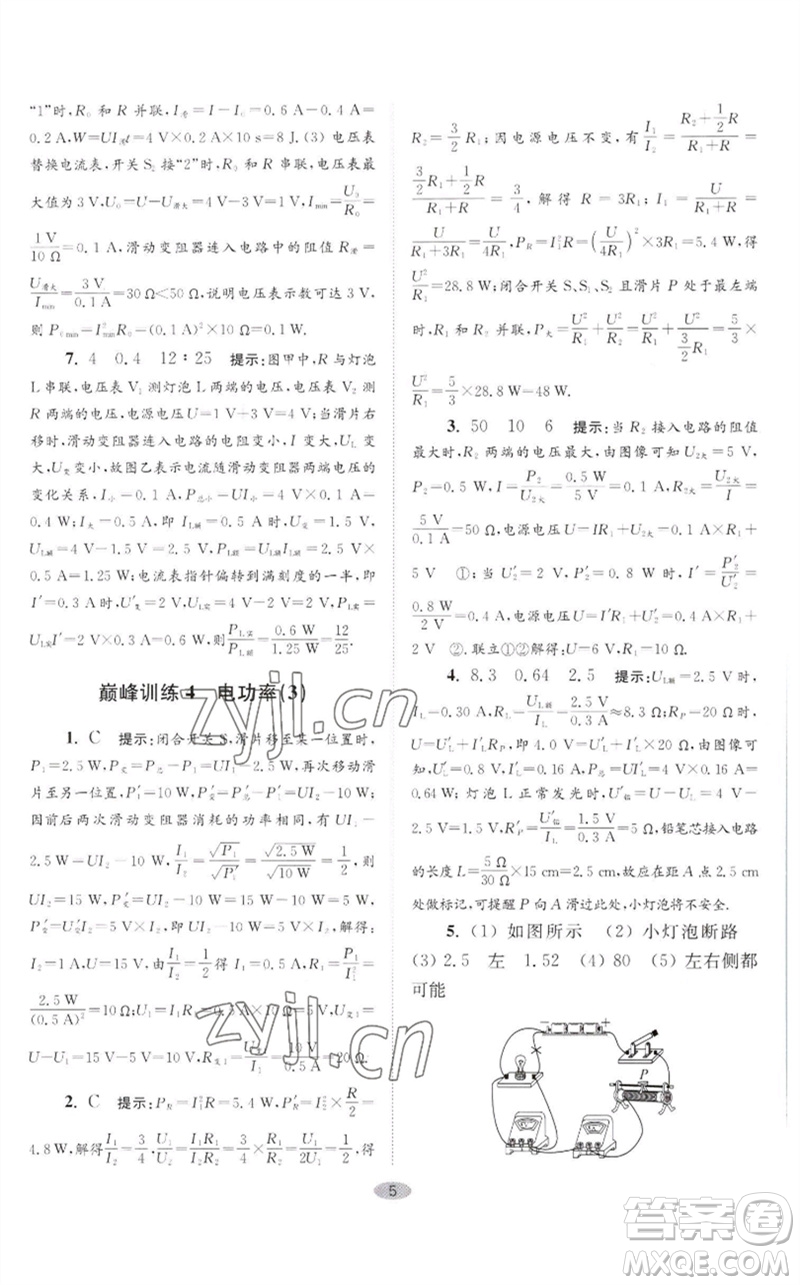 “1”时, R₀ 和 R 并联, I滑=I−I₀=0.6 A−0.4 A=
0.2 A, W=UI滑t=4 V×0.2 A×10 s=8 J. (3) 电压表
替换电流表, 开关 S₂ 接“2”时, R₀ 和 R 串联, 电压表最
大值为 3 V, U₀=U−U滑大=4 V−3 V=1 V, Imin=U₀/R₀=
1 V/10 Ω=0.1 A, 滑动变阻器连入电路中的阻值 R滑=
U滑大/Imin=3 V/0.1 A=30 Ω<50 Ω, 说明电压表示数可达 3 V,
则 P₀min=I²minR₀−(0.1 A)²×10 Ω=0.1 W.
7. 4 0.4 12∶25 提示:图甲中, R 与灯泡
L 串联, 电压表 V₁ 测灯泡 L 两端的电压, 电压表 V₂ 测
R 两端的电压, 电源电压 U=1 V+3 V=4 V; 当滑片右
移时, 滑动变阻器连入电路的电阻变小, I 变大, UL 变
大, U变 变小, 故图乙表示电流随滑动变阻器两端电压的
变化关系, I小−0.1 A, P总小−UI小=4 V×0.1 A−
0.4 W; I大−0.5 A, 即 I额−0.5 A, U变=1.5 V,
UL额−4 V−1.5 V=2.5 V, PL额=UL额IL额−2.5 V×
0.5 A=1.25 W; 电流表指针偏转到满刻度的一半, 即
I′=0.3 A, U′变=2 V, UL实=4 V−2 V=2 V, PL实=
UL实I′=2 V×0.3 A=0.6 W, PL实/PL额=0.6 W/1.25 W=12/25.
巅峰训练 4 电功率(3)
1. C 提示:闭合开关 S, 滑片移至某一位置时,
P₁=2.5 W, P变=P总−P₁=UI₁−2.5 W, 再次移动滑
片到另一位置时, P′₁=10 W, P′变=P′总−P′₁=UI₂−10 W;
因前后两次滑动变阻器消耗的功率相同, 有 UI₁−
2.5 W−UI₂−10 W, I₁/I₂=√P₁/√P′₁=√2.5 W/√10 W=1/2, 则
UI₁−2.5 W−2UI₁−10 W, 有 UI₁=7.5 W, UI₂=15 W,
P′变=UI₂−10 W=5 W, 即 U变2I₂=5 W, 解得:
I₁−0.5 A, I₂=1 A, U=15 V, 由 I₁/I₂=1/2, 得 R₁=P₁/I₁²=
2.5 W/(0.5 A)²=10 Ω; U₁−I₁R₁=0.5 A×10 Ω−5 V, U变1=
U−U₁−15 V−5 V=10 V, R变1=U变1/I₁=10 V/0.5 A=20 Ω.
2. C 提示: PR=I₁²R=5.4 W, P′R=I₂²×R/2=
4.8 W, 解得 I₁/I₂=3/4, U₁/U₂=I₁R₁/I₂R₂=3/4×R₁/R₂=1/2, 得
R₂=3/2 R₁; 因电源电压不变, 有 I₁/I₂=(R₂+1/2 R)/(R₁+R)=
(3/2 R₁+1/2 R)/(R₁+R)=3/4, 解得 R=3R₁; I₁=U/(R₁+R)=
U/(R₁+3R₁)=U/4R₁, PR=I₁²R=(U/4R₁)²×3R₁=5.4 W, 得
U²/R₁=28.8 W; 闭合开关 S、S₁、S₂ 且滑片 P 处于最左端
时, R₁ 和 R₂ 并联, P大=U²/R₁+U²/R₂=U²/R₁+U²/(3/2 R₁)=5/3×
U²/R₁=5/3×28.8 W−48 W.
3. 50 10 6 提示:当 R₂ 接入电路的阻值
最大时, R₂ 两端的电压最大, 由图像可知 U₂大=5 V,
P₂=0.5 W, I=P₂/U₂大=0.5 W/5 V=0.1 A, R₂大=U₂大/I=
5 V/0.1 A=50 Ω, 电源电压 U=IR₁+U₂大−0.1 A×R₁+
5 V ①; 当 U′₂=2 V, P′₂=0.8 W 时, I′=P′₂/U′₂=
0.8 W/2 V=0.4 A, 电源电压 U=I′R₁+U′₂=0.4 A×R₁+
2 V ②. 联立①②解得: U−6 V, R₁−10 Ω.
4. 8.3 0.64 2.5 提示: UL额−2.5 V,
IL−0.30 A, RL=UL额/IL=2.5 V/0.3 A≈8.3 Ω; RP−20 Ω 时,
U=U′L+I′LRP=0.8 V+0.16 A×20 Ω=4 V, 由图像可
知 U′L=0.8 V, I′L=0.16 A, P总=UI′L=4 V×0.16 A=
0.64 W; 灯泡 L 正常发光时, U′铅=U−UL额=4 V−
2.5 V=1.5 V, R′P=U′铅/IL=1.5 V/0.3 A=5 Ω, 铅笔芯接入电路
的长度 L=5 Ω/30 Ω×15 cm=2.5 cm, 故应在距 A 点 2.5 cm
处做标记, 可提醒 P 向 A 滑过此点时, 小灯泡将不安全.
5. (1) 如图所示 (2) 小灯泡断路
(3) 2.5 左 1.52 (4) 80 (5) 左右侧都
可能
P
5
zyjl.cn
zyjl.cn
答案卷
MXQE.COM